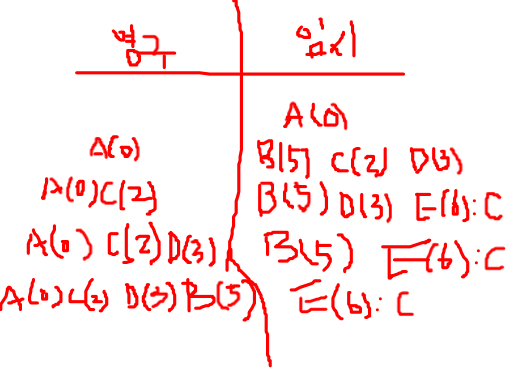 영구 임시
A(0)
A(0) B(5) C(2) D(3)
A(0) C(2) B(5) D(3) E(6):C
A(0) C(2) D(3) B(5) E(6):C
A(0) C(2) D(3) B(5) E(6):C